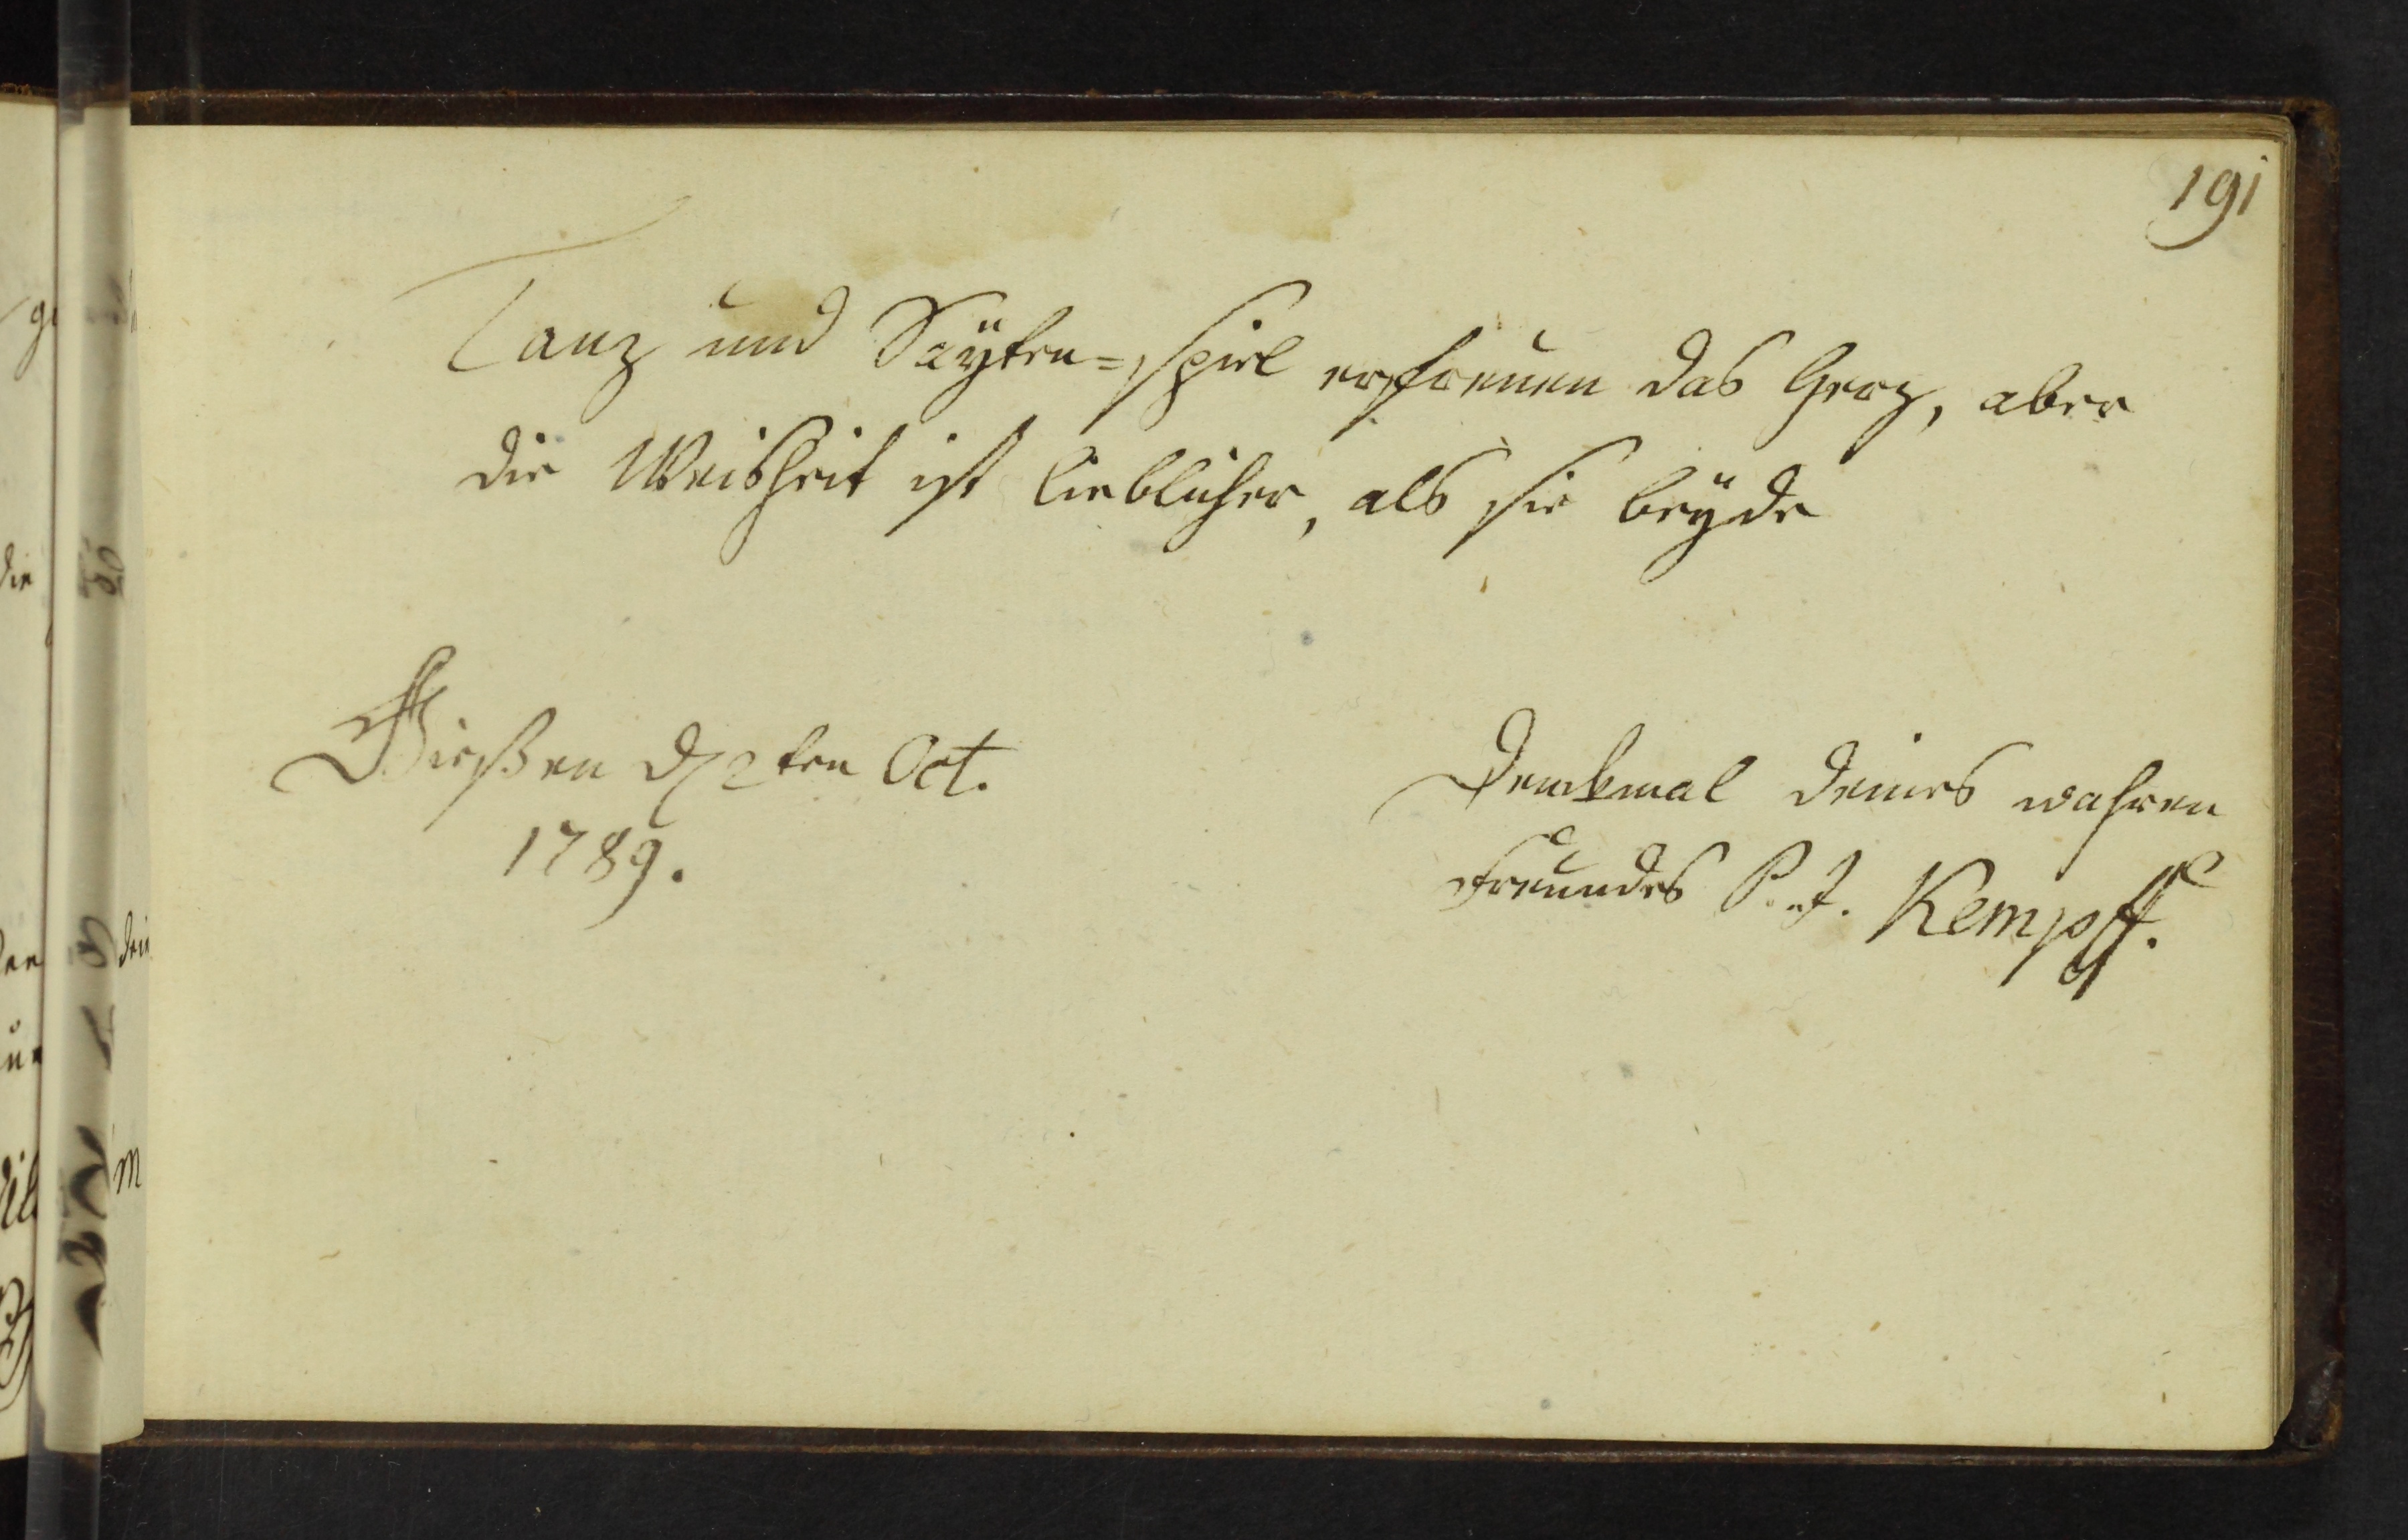 191
Tanz und Säyten=spiel erfreuen das Herz, aber
die Weisheit ist lieblicher, als sie beÿde
Gießen d 2ten Oct.
1789.
Denkmal deines wahren
Freundes P. J. Kempff.